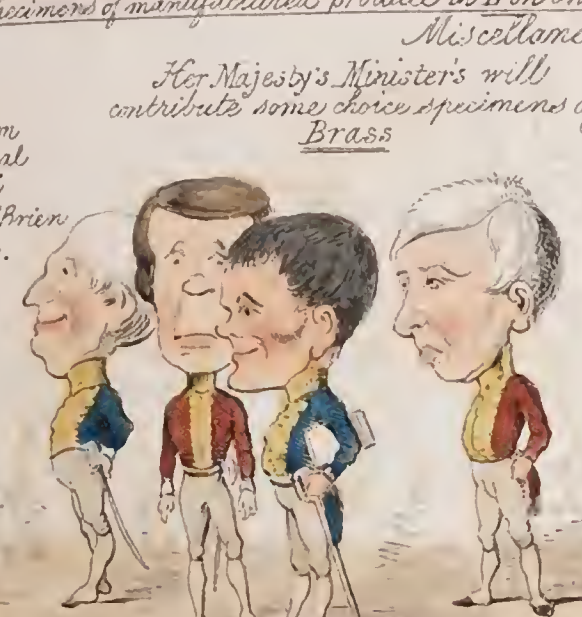 specimens of manufactured produce in Iron on
Miscellane
Her Majesty's Minister's will
contribute some choice specimens
Brass
Brien